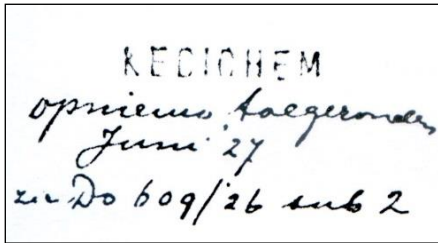 KEDICHEM
opnieuw toegezonden
Juni '27
zie Do 609/26 sub 2